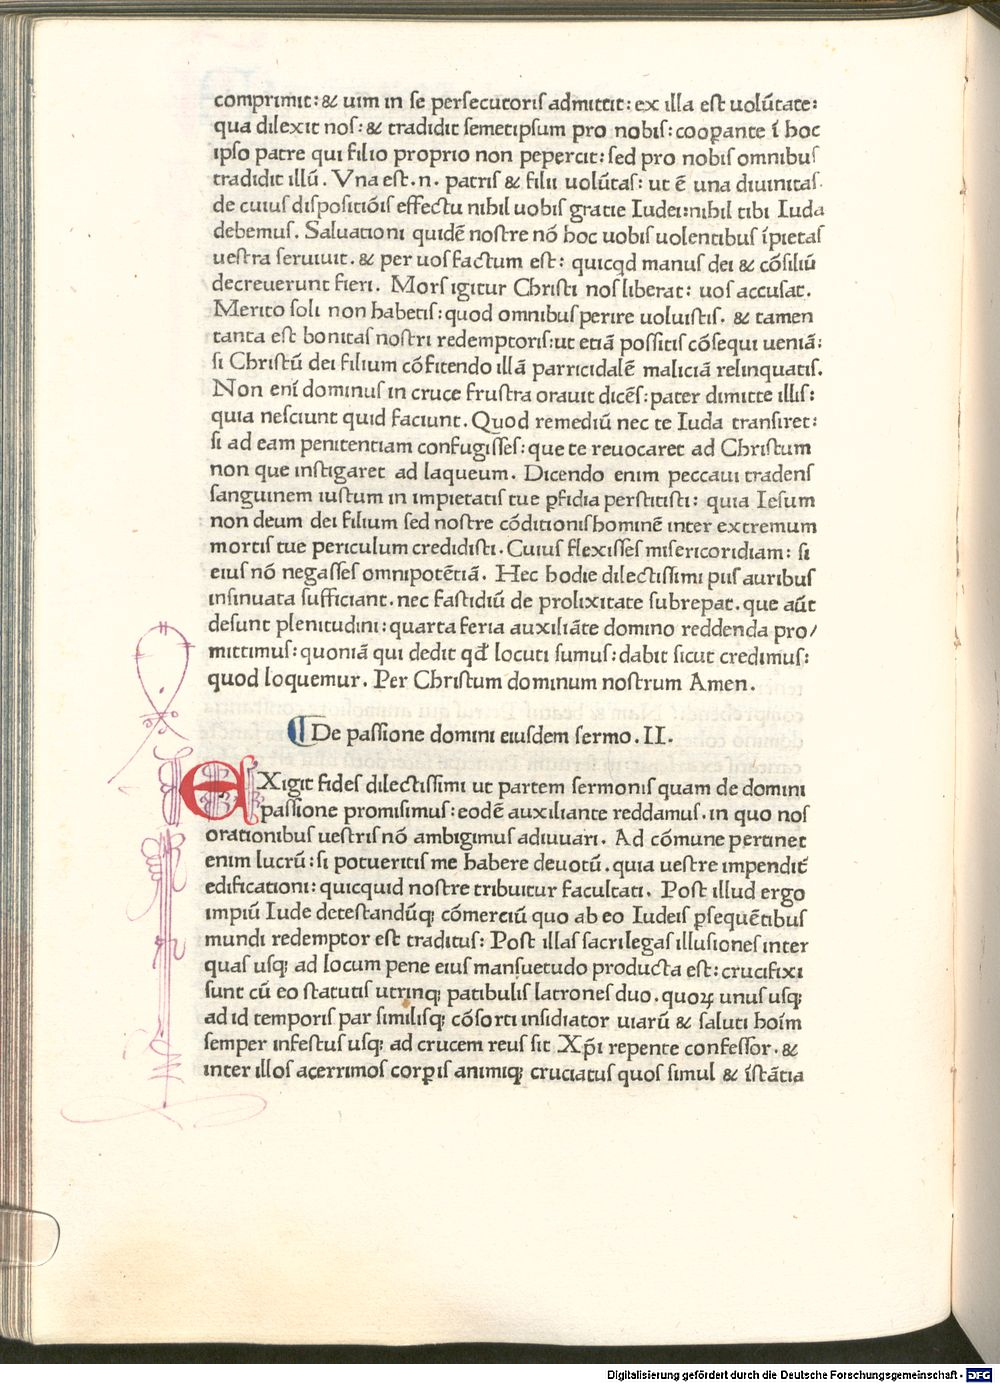 comprimit: & uim in se persecutoris admittit: ex illa est uolūtate:
qua dilexit nos: & tradidit semetipsum pro nobis: cooꝑante ī hoc
ipso patre qui filio proprio non pepercit: sed pro nobis omnibus
tradidit illū. Vna est .n. patris & filii uolūtas: ut ē una diuinitas.
de cuius dispositiōis effectu nihil uobis gratie Iudei: nihil tibi Iuda
debemus. Saluationi quidē nostre nō hoc uobis uolentibus īpietas
uestra seruiuit. & per uos factum est: quicqd manus dei & cōsiliū
decreuerunt fieri. Mors igitur Christi nos liberat: uos accusat.
Merito soli non habetis: quod omnibus perire uoluistis. & tamen
tanta est bonitas nostri redemptoris: ut etiā possitis cōsequi ueniā:
si Christū dei filium cōfitendo illā parricidalē maliciā relinquatis.
Non enī dominus in cruce frustra orauit dicēs: pater dimitte illis:
quia nesciunt quid faciunt. Quod remediū nec te Iuda transiret:
si ad eam penitentiam confugisses: que te reuocaret ad Christum
non que instigaret ad laqueum. Dicendo enim peccaui tradens
sanguinem iustum in impietatis tue ꝑfidia perstitisti: quia Iesum
non deum dei filium sed nostre cōditionis hominē inter extremum
mortis tue periculum credidisti. Cuius flexisses misericoridiam: si
eius nō negasses omnipotētiā. Hec hodie dilectissimi piis auribus
insinuata sufficiant. nec fastidiū de prolixitate subrepat. que aūt
desunt plenitudini: quarta feria auxiliāte domino reddenda pro/
mittimus: quoniā qui dedit qđ locuti sumus: dabit sicut credimus:
quod loquemur. Per Christum dominum nostrum Amen.
⸿ De passione domini eiusdem sermo. II.
EXigit fides dilectissimi ut partem sermonis quam de domini
passione promisimus: eodē auxiliante reddamus. in quo nos
orationibus uestris nō ambigimus adiuuari. Ad cōmune pertinet
enim lucrū: si potueritis me habere deuotū. quia uestre impendit̄
edificationi: quicquid nostre tribuitur facultati. Post illud ergo
impiū Iude detestandūqꝫ cōmerciū quo ab eo Iudeis ꝑsequētibus
mundi redemptor est traditus: Post illas sacrilegas illusiones inter
quas usqꝫ ad locum pene eius mansuetudo producta est: crucifixi
sunt cū eo statutis utrinqꝫ patibulis latrones duo. quoꝝ unus usqꝫ
ad id temporis par similisqꝫ cōsorti insidiator uiarū & saluti hoīm
semper infestus usqꝫ ad crucem reus sit Xp̄i repente confessor. &
inter illos acerrimos corꝑis animiqꝫ cruciatus quos simul & īstātia
Digitalisierung gefördert durch die Deutsche Forschungsgemeinschaft - DFG